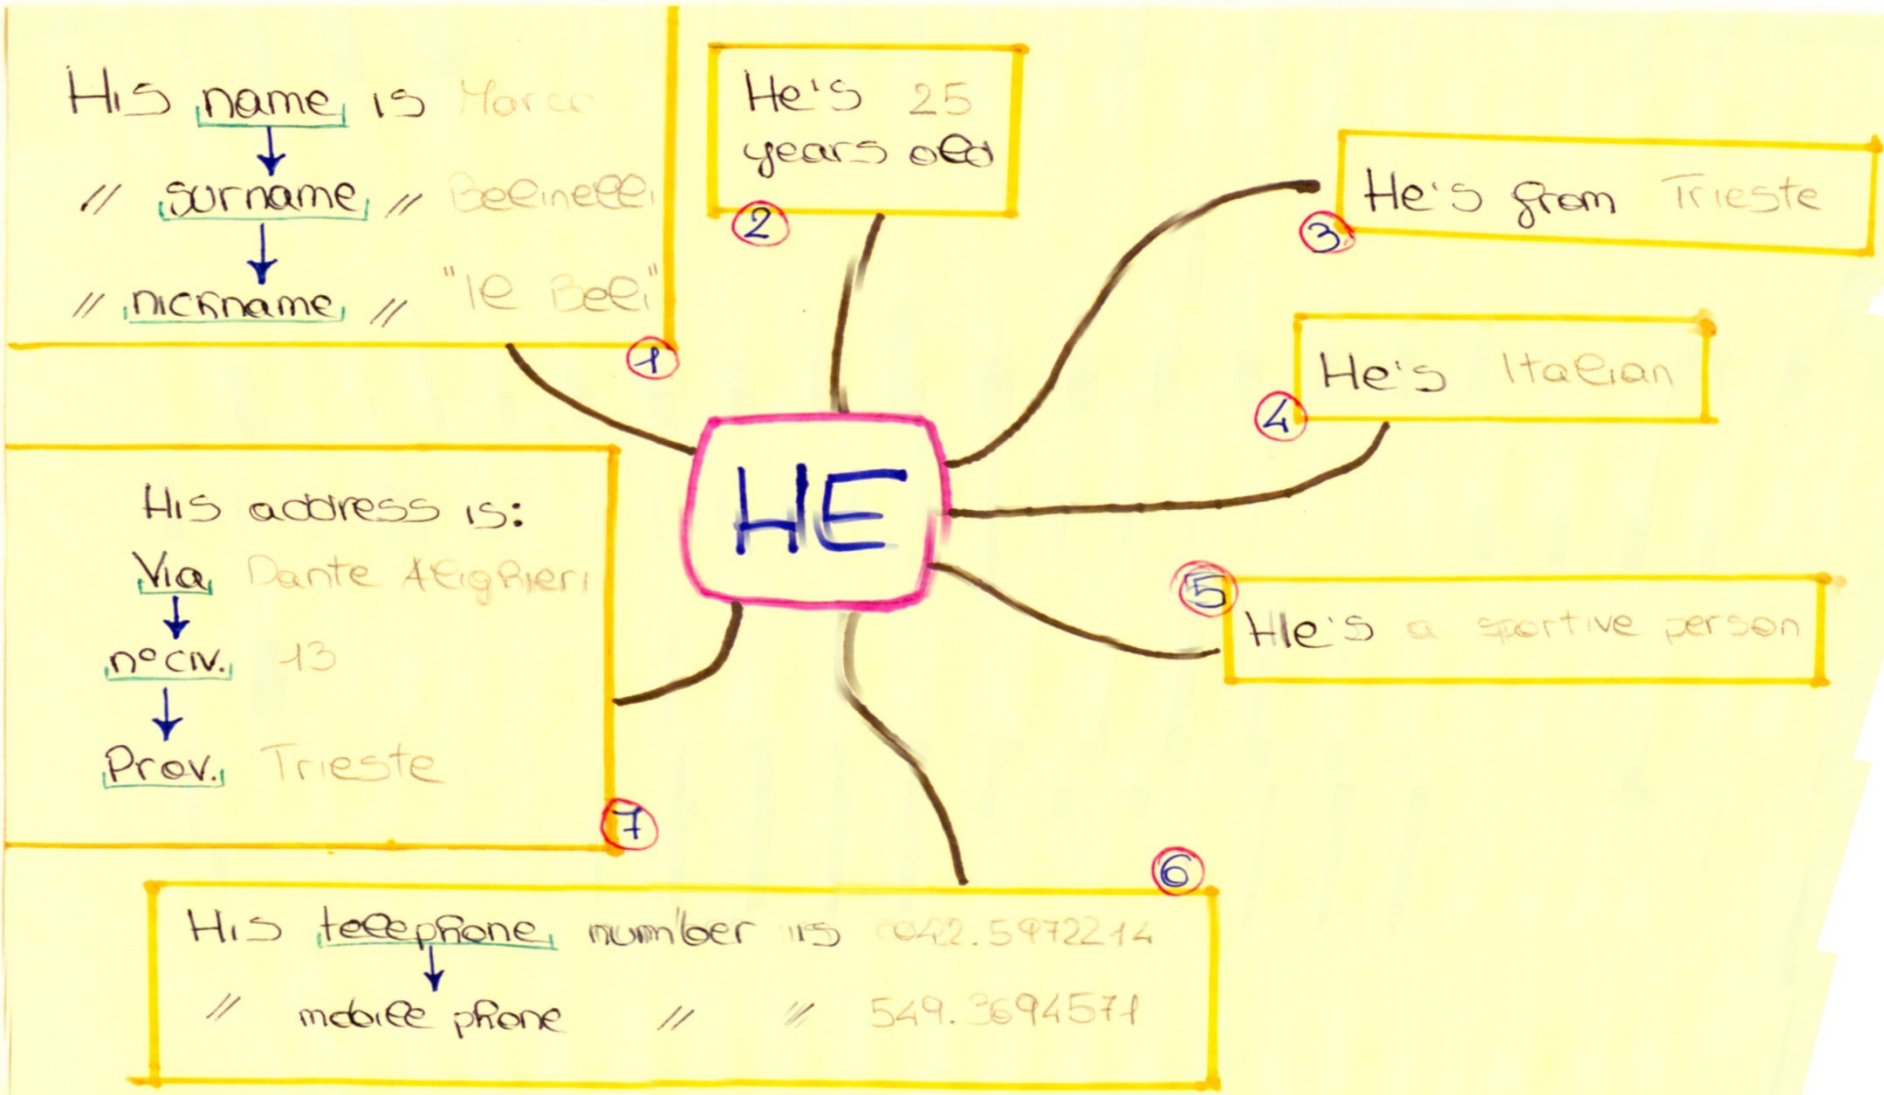 His name is Marco
// surname // Belinelli
// nickname // "Il Beli"
1
He's 25
years old
2
He's from Trieste
3
He's Italian
4
HE
5
He's a sportive person
6
His telephone number is 0042.5972214
// mobile phone // // 549.3694571
His address is:
Via Dante Alighieri
n° civ. 13
Prov. Trieste
7